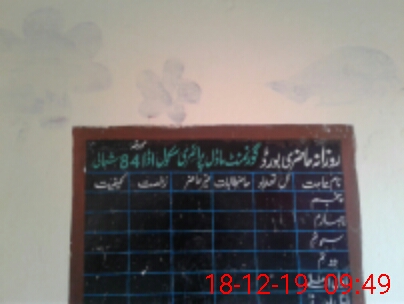 روزانہ حاضری بورڈ گورنمنٹ ماڈل پرائمری سکول اڈا 84 شمالی
نام جماعت کل تعداد حاضر طلباء غیر حاضر رخصت کیفیت
پنجم
چہارم
سوئم
دوئم
18-12-19 09:49